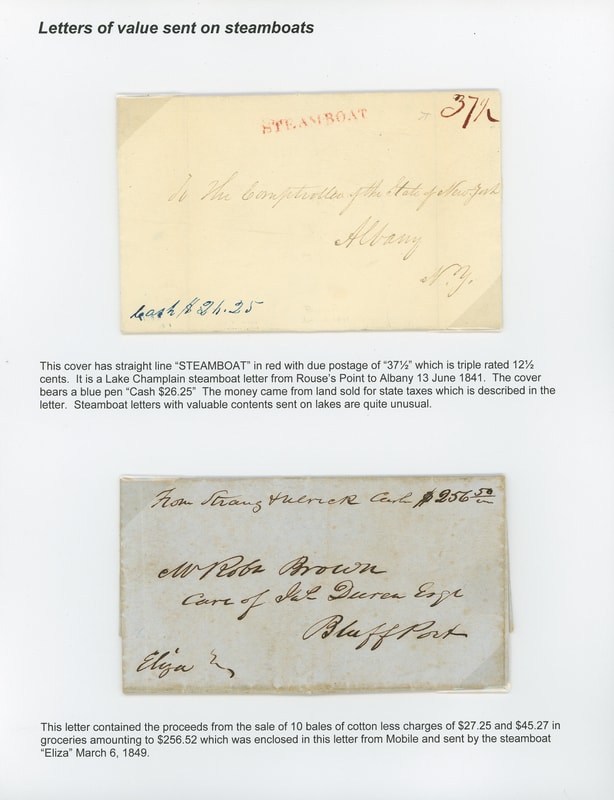 Letters of value sent on steamboats
STEAMBOAT
37½
To The Comptroller of the State of New York
Albany
N.Y.
Cash $26.25
This cover has straight line “STEAMBOAT” in red with due postage of “37½” which is triple rated 12½
cents. It is a Lake Champlain steamboat letter from Rouse’s Point to Albany 13 June 1841. The cover
bears a blue pen “Cash $26.25” The money came from land sold for state taxes which is described in the
letter. Steamboat letters with valuable contents sent on lakes are quite unusual.
From Strang & Cash $256 50
Mr Robt Brown
Care of Duren Esqr
Bluff Port
Eliza
This letter contained the proceeds from the sale of 10 bales of cotton less charges of $27.25 and $45.27 in
groceries amounting to $256.52 which was enclosed in this letter from Mobile and sent by the steamboat
“Eliza” March 6, 1849.